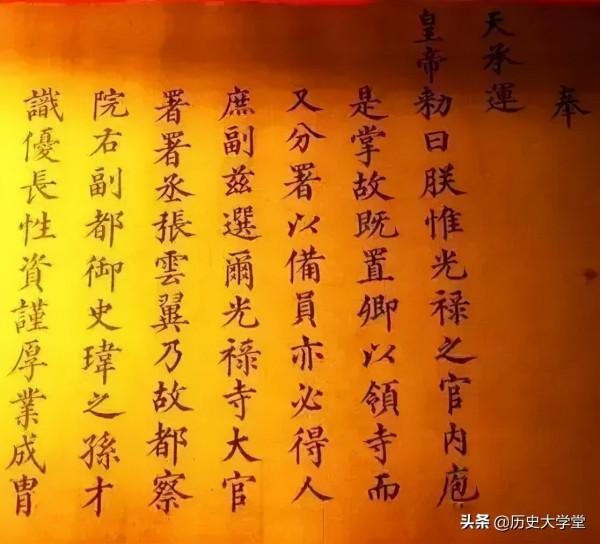 奉
天承運
皇帝勅曰朕惟光禄之官内庖
是掌故既置卿以領寺而
又分署以備員亦必得人
庶副兹選爾光禄寺大官
署署丞張雲翼乃故都察
院右副都御史瑋之孫才
識優長性資謹厚業成胄
头条 @历史大学堂